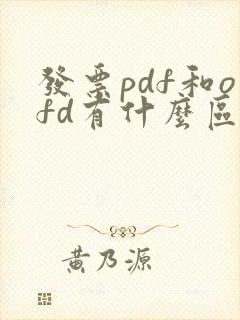 發票pdf和o
fd有什麼區
黃乃源